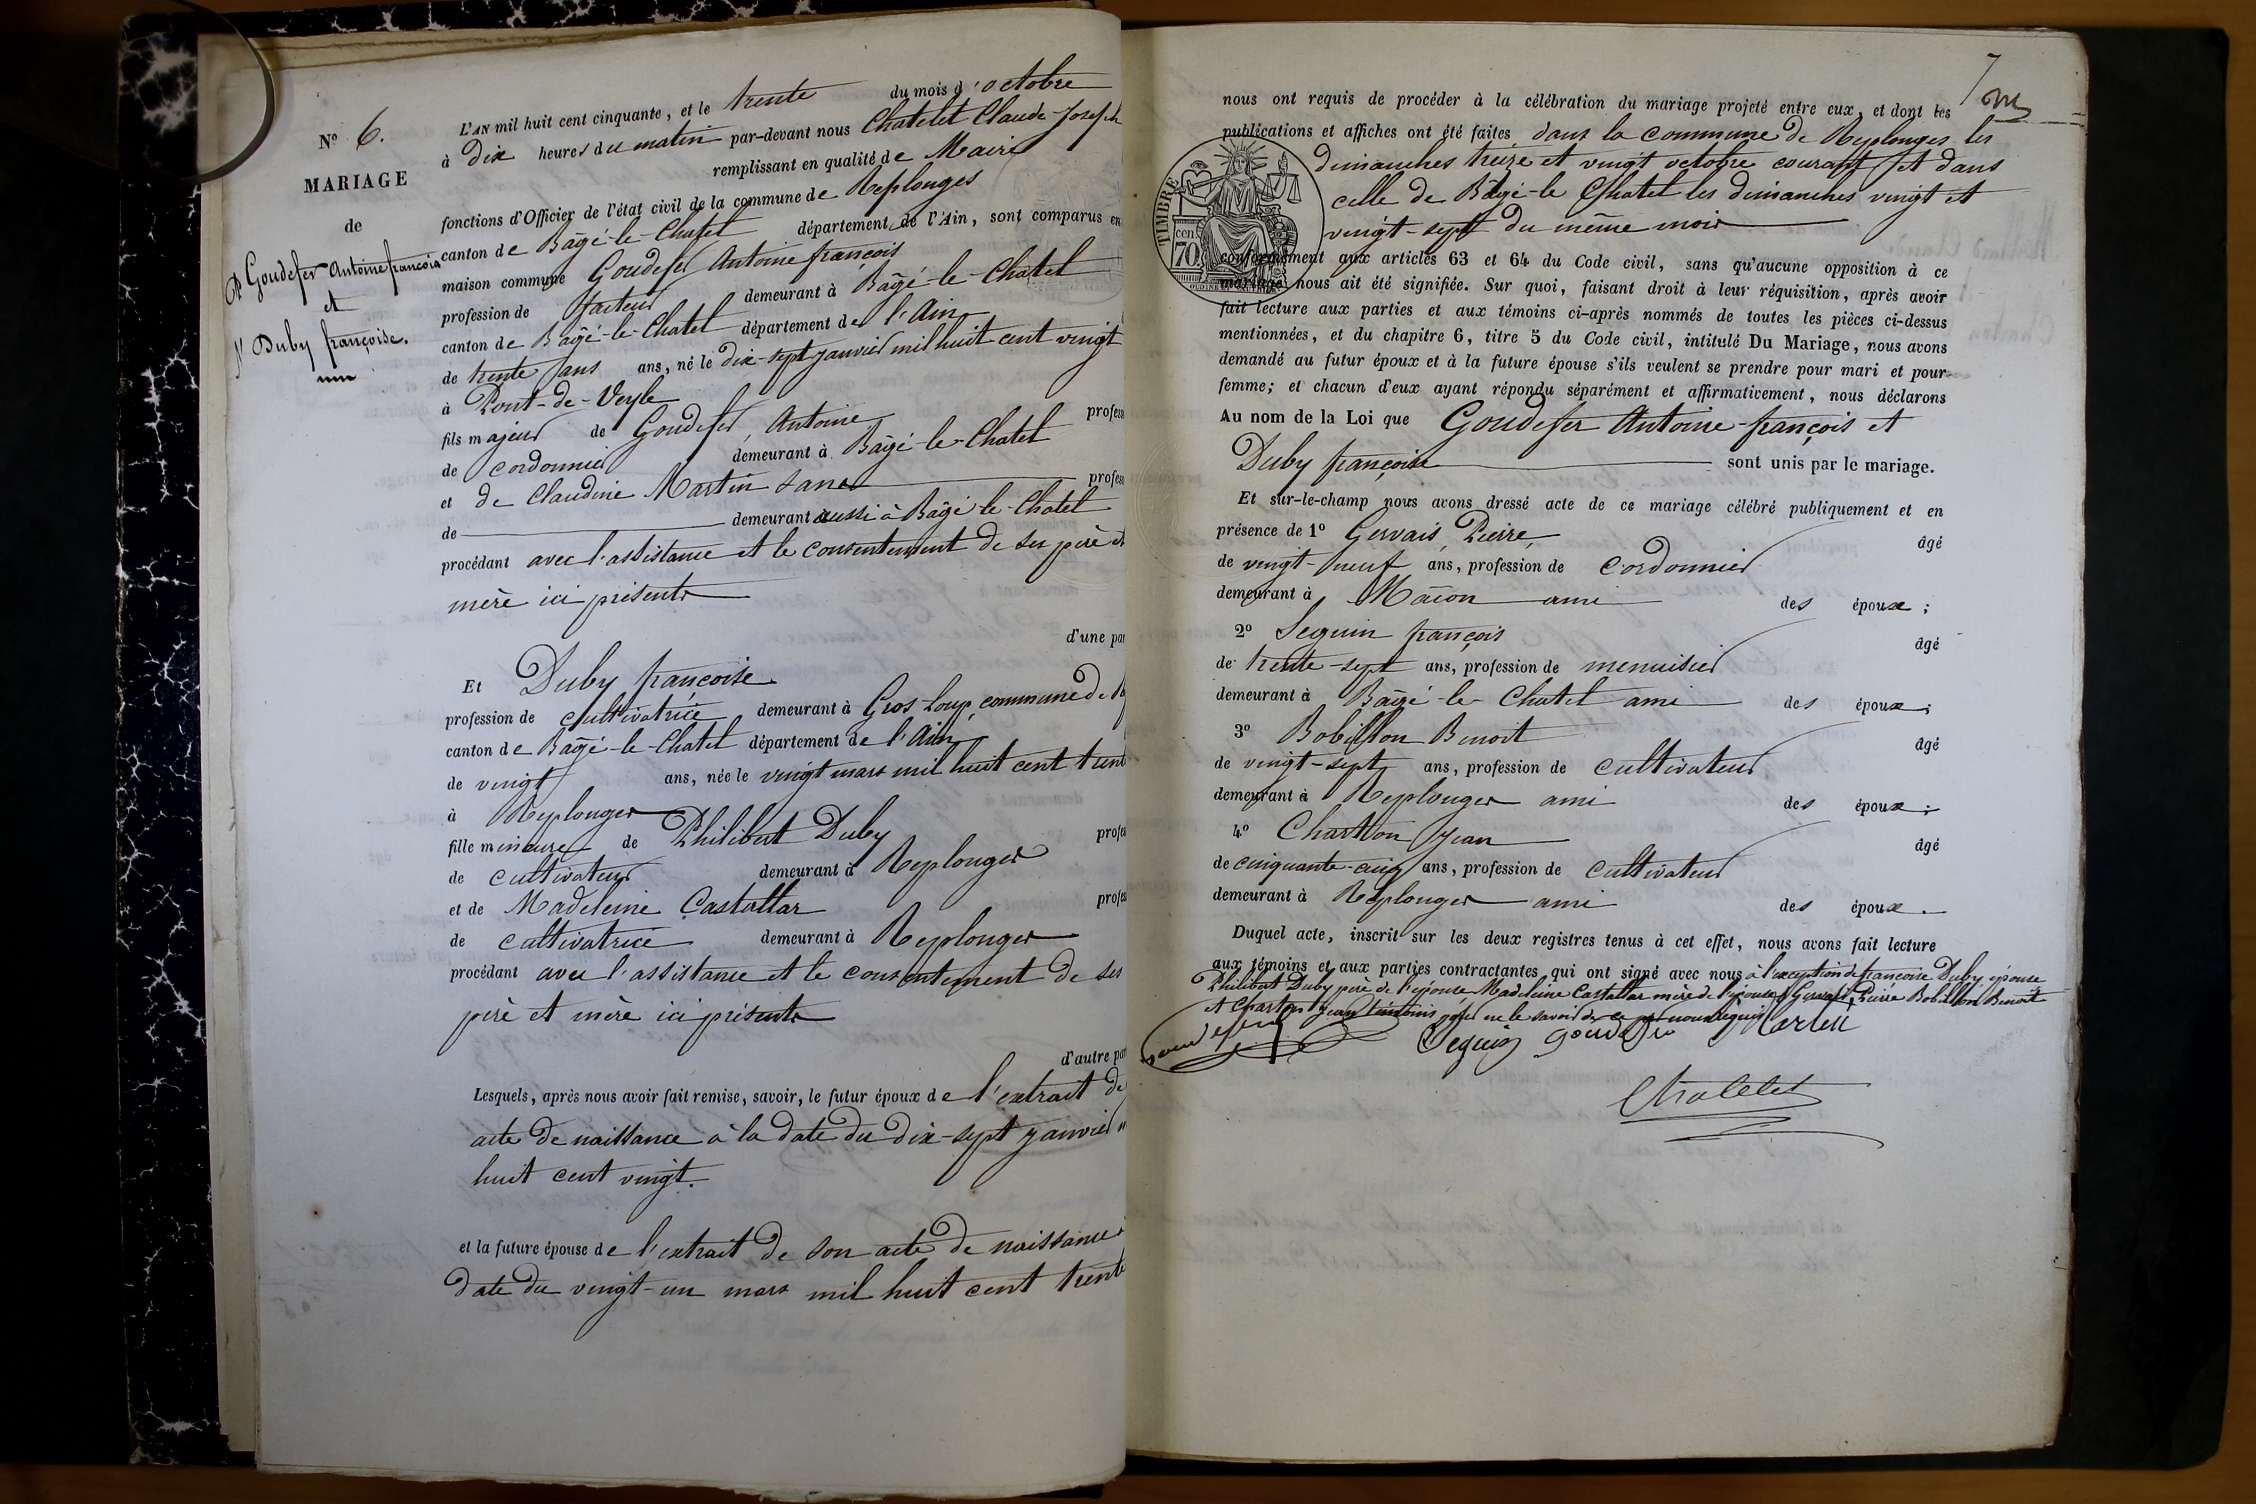 Nº 6.
MARIAGE
de
Goudefer Antoine françois
et
Duby françoise.
L'AN mil huit cent cinquante, et le trente du mois d'octobre
à dix heures du matin par-devant nous Chatelet Claude-Joseph
remplissant en qualité de Maire
fonctions d'Officier de l'état civil de la commune de Replonges
canton de Bâgé-le-Chatel département de l'Ain, sont comparus en
maison commune Goudefer Antoine françois
profession de facteur demeurant à Bâgé-le-Chatel
canton de Bâgé-le-Chatel département de l'Ain
de trente ans ans, né le dix-sept janvier mil huit cent vingt
à Pont-de-Veyle
fils majeur de Goudefer Antoine profess
de cordonnier demeurant à Bâgé-le-Chatel
et de Claudine Martin sans profess
de demeurant aussi à Bâgé-le-Chatel
procédant avec l'assistance et le consentement de ses père et
mère ici présents
d'une par
Et Duby françoise
profession de cultivatrice demeurant à Gros-Loup, commune de
canton de Bâgé-le-Chatel département de l'Ain
de vingt ans, née le vingt mars mil huit cent trent
à Replonges
fille mineure de Philibert Duby profes
de cultivateur demeurant à Replonges
et de Madeleine Castallar profes
de cultivatrice demeurant à Replonges
procédant avec l'assistance et le consentement de ses
père et mère ici présents
d'autre par
Lesquels, après nous avoir fait remise, savoir, le futur époux de l'extrait de
acte de naissance à la date du dix-sept janvier
huit cent vingt.
et la future épouse de l'extrait de son acte de naissance
date du vingt-un mars mil huit cent trente
7
nous ont requis de procéder à la célébration du mariage projeté entre eux, et dont les
publications et affiches ont été faites dans la commune de Replonges les
dimanches treize et vingt octobre courant et dans
celle de Bâgé-le Chatel les dimanches vingt et
vingt-sept du même mois
TIMBRE
70
cen
conformément aux articles 63 et 64 du Code civil, sans qu'aucune opposition à ce
mariage nous ait été signifiée. Sur quoi, faisant droit à leur réquisition, après avoir
fait lecture aux parties et aux témoins ci-après nommés de toutes les pièces ci-dessus
mentionnées, et du chapitre 6, titre 5 du Code civil, intitulé Du Mariage, nous avons
demandé au futur époux et à la future épouse s'ils veulent se prendre pour mari et pour
femme; et chacun d'eux ayant répondu séparément et affirmativement, nous déclarons
Au nom de la Loi que Goudefer Antoine-françois et
Duby françoise sont unis par le mariage.
Et sur-le-champ nous avons dressé acte de ce mariage célébré publiquement et en
présence de 1º Gervais Pierre, âgé
de vingt-neuf ans, profession de cordonnier
demeurant à Mâcon ami des époux;
2º Seguin françois âgé
de trente-sept ans, profession de menuisier
demeurant à Bâgé-le-Chatel ami des époux;
3º Bobillon Benoit âgé
de vingt-sept ans, profession de cultivateur
demeurant à Replonges ami des époux;
4º Charton Jean âgé
de cinquante-cinq ans, profession de cultivateur
demeurant à Replonges ami des époux.
Duquel acte, inscrit sur les deux registres tenus à cet effet, nous avons fait lecture
aux témoins et aux parties contractantes qui ont signé avec nous à l'exception de françoise Duby épouse
Philibert Duby père de l'épouse, Madeleine Castallar mère de l'épouse, Gervais Pierre Bobillon Benoit
et Charton Jean témoins pour ne le savoir de ce requis
Seguin
Chatelet